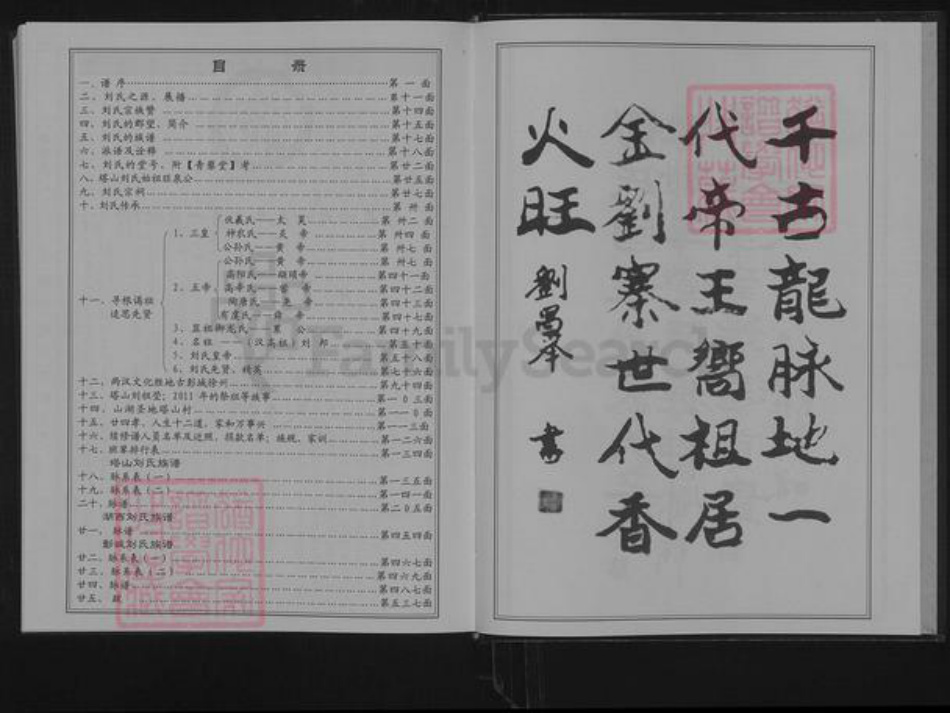 目 录
一、谱序……第一面
二、刘氏之源、展播……第十一面
三、刘氏宗族赞……第十四面
四、刘氏的郡望、简介……第十五面
五、刘氏的族谱……第十七面
六、派语及诠释……第十八面
七、刘氏的堂号、附【青藜堂】考……第廿二面
八、塔山刘氏始祖琼泉公……第廿五面
九、刘氏宗祠……第廿七面
十、刘氏传承……第卅面
十一、寻根诵祖 追思先贤
1、三皇
伏羲氏——太昊……第卅二面
神农氏——炎帝……第卅四面
公孙氏——黄帝……第卅七面
2、五帝
公孙氏——黄帝……第卅七面
高阳氏——颛顼帝……第四十一面
高辛氏——喾帝……第四十二面
陶唐氏——尧帝……第四十三面
有虞氏——舜帝……第四十七面
3、显祖御龙氏——累公……第四十九面
4、名祖——(汉高祖)刘邦……第五十面
5、刘氏皇帝……第五十八面
6、刘氏先贤、精英……第七十六面
十二、两汉文化胜地古彭城徐州……第九十四面
十三、塔山刘祖茔;2011年的祭祖等族事……第一0三面
十四、山湖圣地塔山村……第一一0面
十五、廿四孝、人生十二道、家和万事兴……第一一三面
十六、续修谱人员名单及近照、捐款名单;族规、家训……第一二六面
十七、班辈排行表……第一三四面
塔山刘氏族谱
十八、脉系表(一)……第一三五面
十九、脉系表(二)……第一四一面
二十、脉谱……第二0五面
湖西刘氏族谱
廿一、脉谱……第四五四面
彭城刘氏族谱
廿二、脉系表(一)……第四六七面
廿三、脉系表(二)……第四六九面
廿四、脉谱……第四八七面
廿五、跋……第五三七面
千古龍脉地一
代帝王嚮祖居
金劉寨世代香
火旺
劉昌本 書
FamilySearch